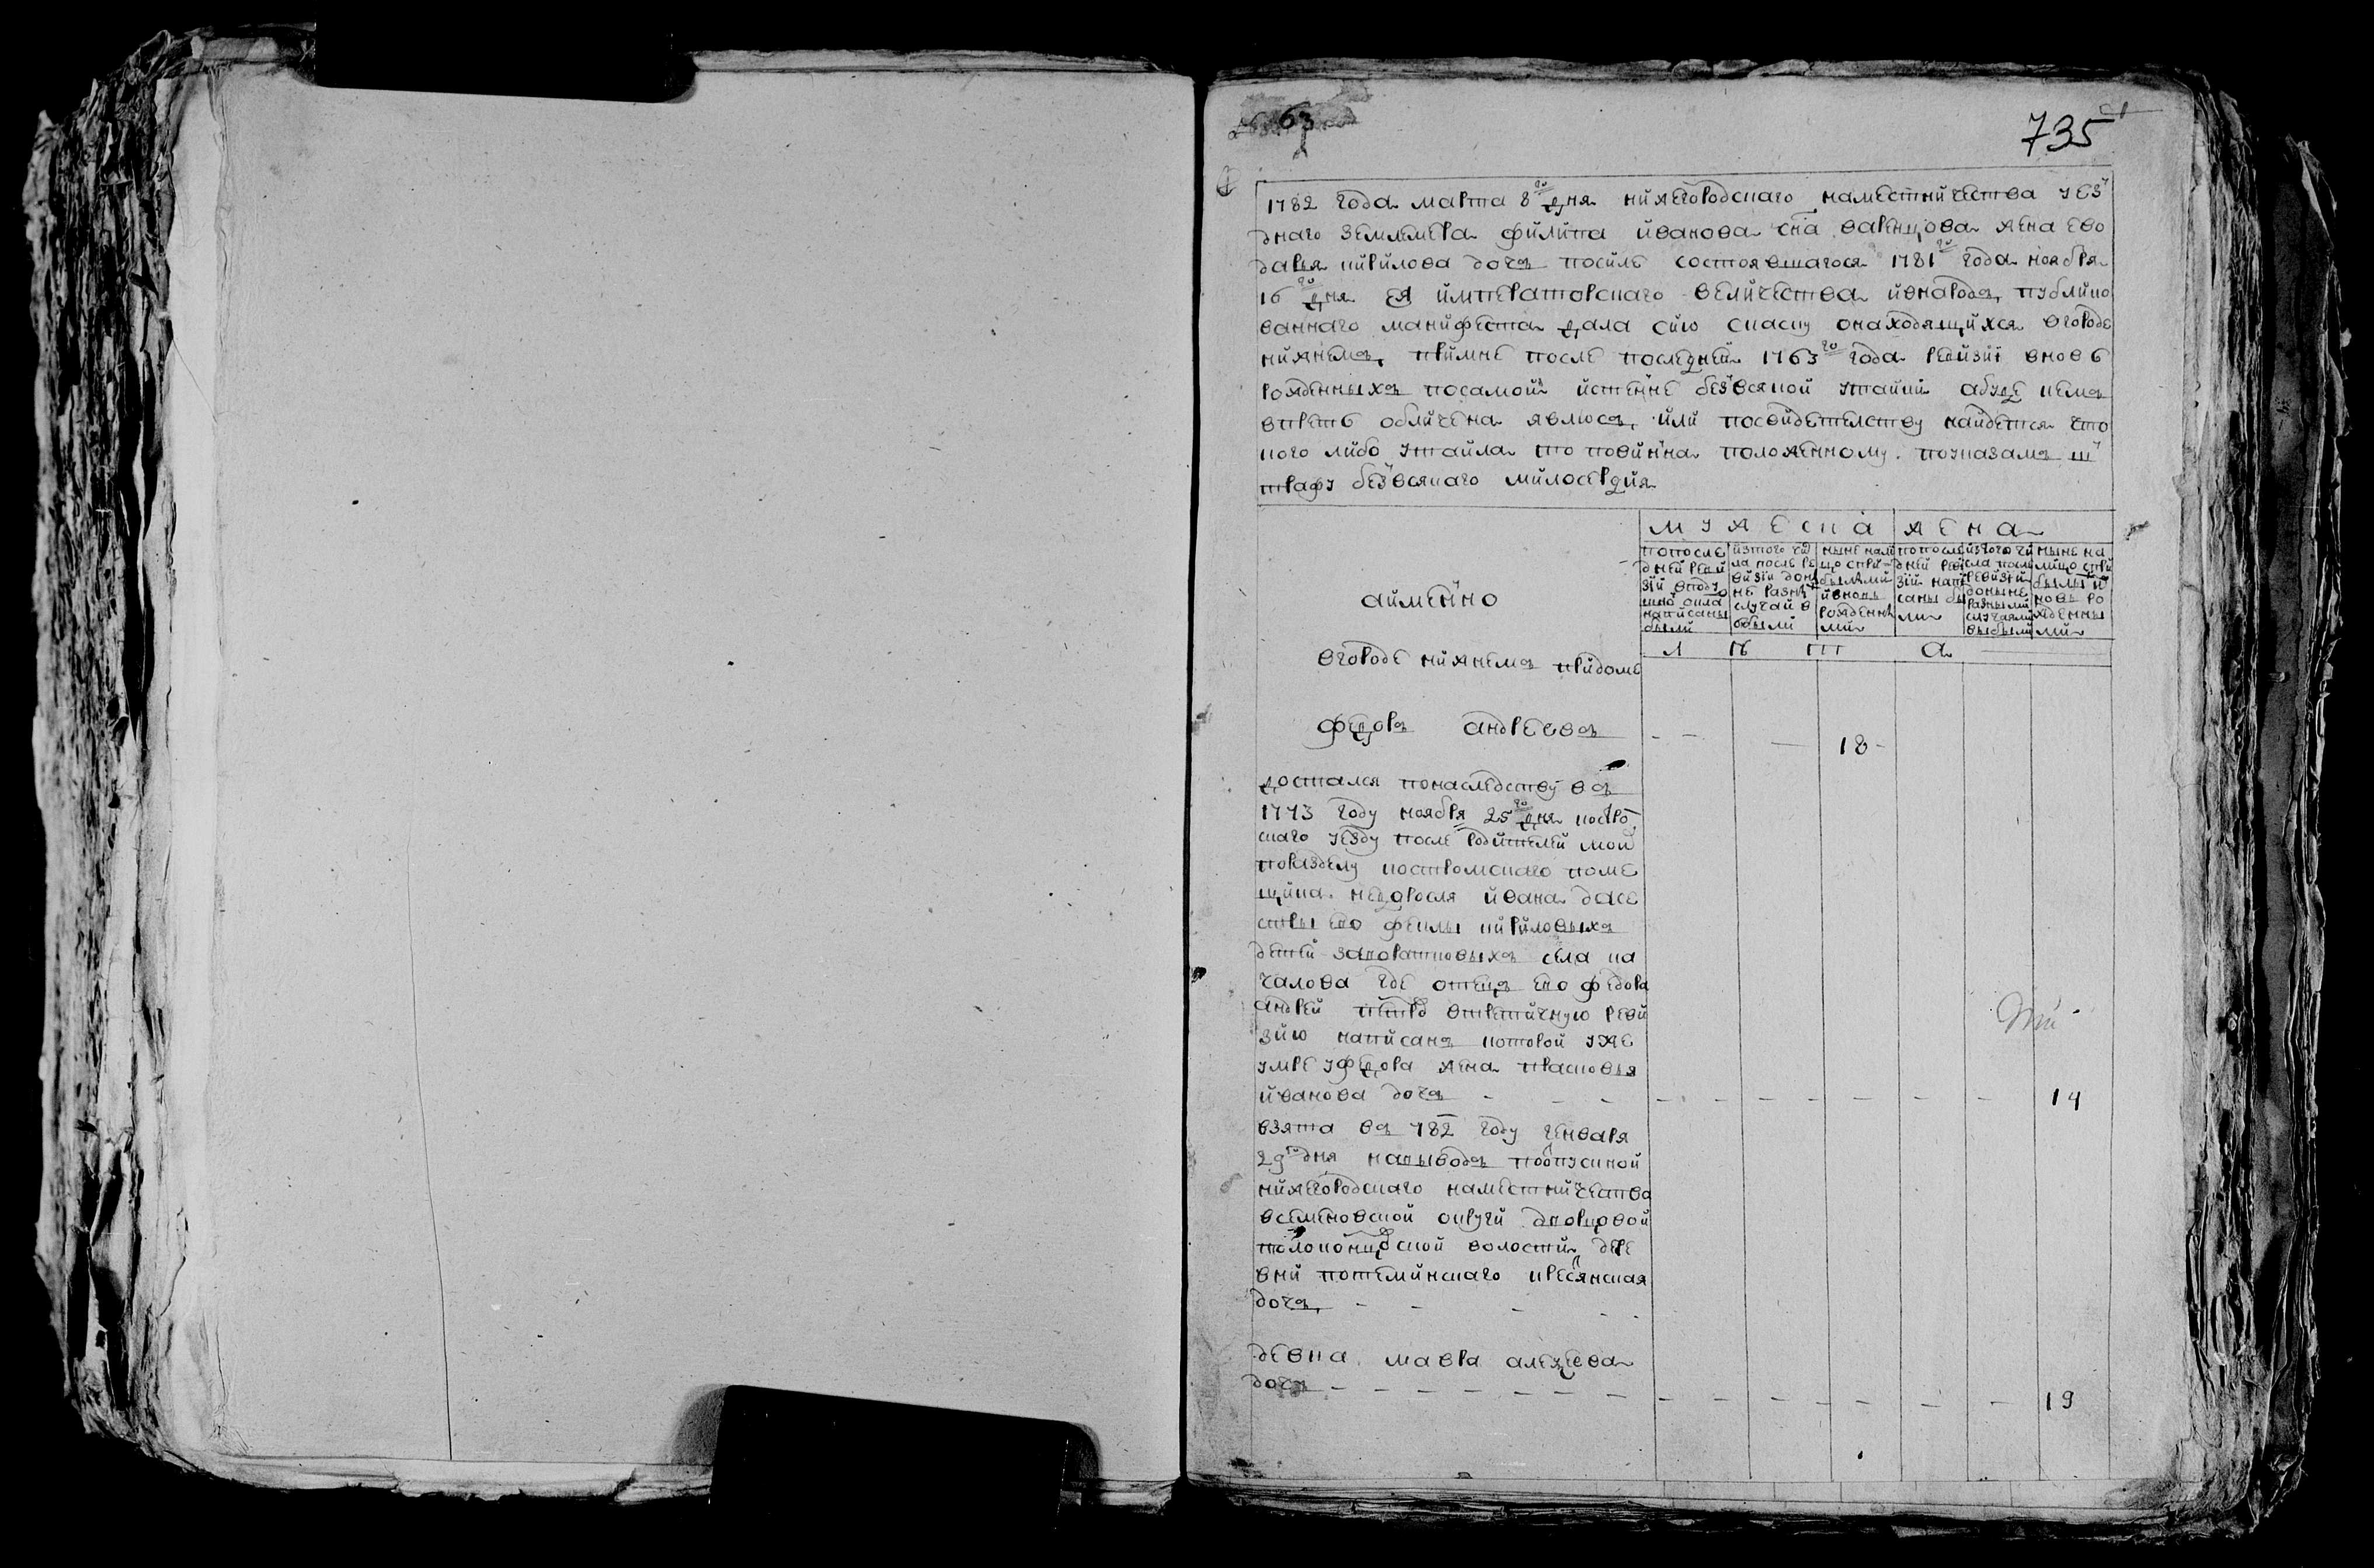 63
735
1782 года марта 8го дня нижегородскаго наместничества уез
днаго землемера филипа иванова сна варенцова жена ево
дарья кирилова дочь посиле состоявшагося 1781го года ноября
16го дня ея императорскаго величества ивнародъ публико
ваннаго манифеста дала сию скаску онаходящихся вгороде
нижнемъ примне после последней 1763го года ревизии вновь
рожденныхъ посамой истенне безвсякой утайки абуде чемъ
впреть обличена явлюсъ или посвидетелству найдется что
кого либо утаила то повинна положенному поуказамъ ш
трафу безвсякаго милосердия
мужеска жена
аименно
попосле
дней реви
зии вподу
написаны
были
изтого чи
ла после ре
визии до
не разны
случай в
были
ныне нали
цо спри
былыми
ивновь
рожденны
ми
попосле
дней реви
зии напи
саны бы
ли
изтого чи
сла после
ревизии
доныне
разными
случаями
выбыли
ныне на
лицо спри
былыми
новь ро
жденны
ми
л
вгороде нижнемъ придоме
федоръ андреевъ - - — 18 -
достался понаследству въ
1773 году ноября 25го дня костро
скаго уезду после родителей мои
поразделу костромскаго поме
щика недоросля ивана дасе
стры ево феклы кириловыхъ
детей села ка
чалова где отецъ ево федора
андрей впретичную реви
зию написанъ которой уже
умре уфедора жена прасковья
иванова дочь - - - - - - - - - - 14
взята въ 782 году генваря
29го дня навыводъ поопускной
нижегородскаго наместничества
всеменовской округи дворцовой
толоконцовской волости дере
вни потеминскаго кресянская
дочь - - - -
девка мавра алексеева
дочь - - - - - - - - - - - - - 19